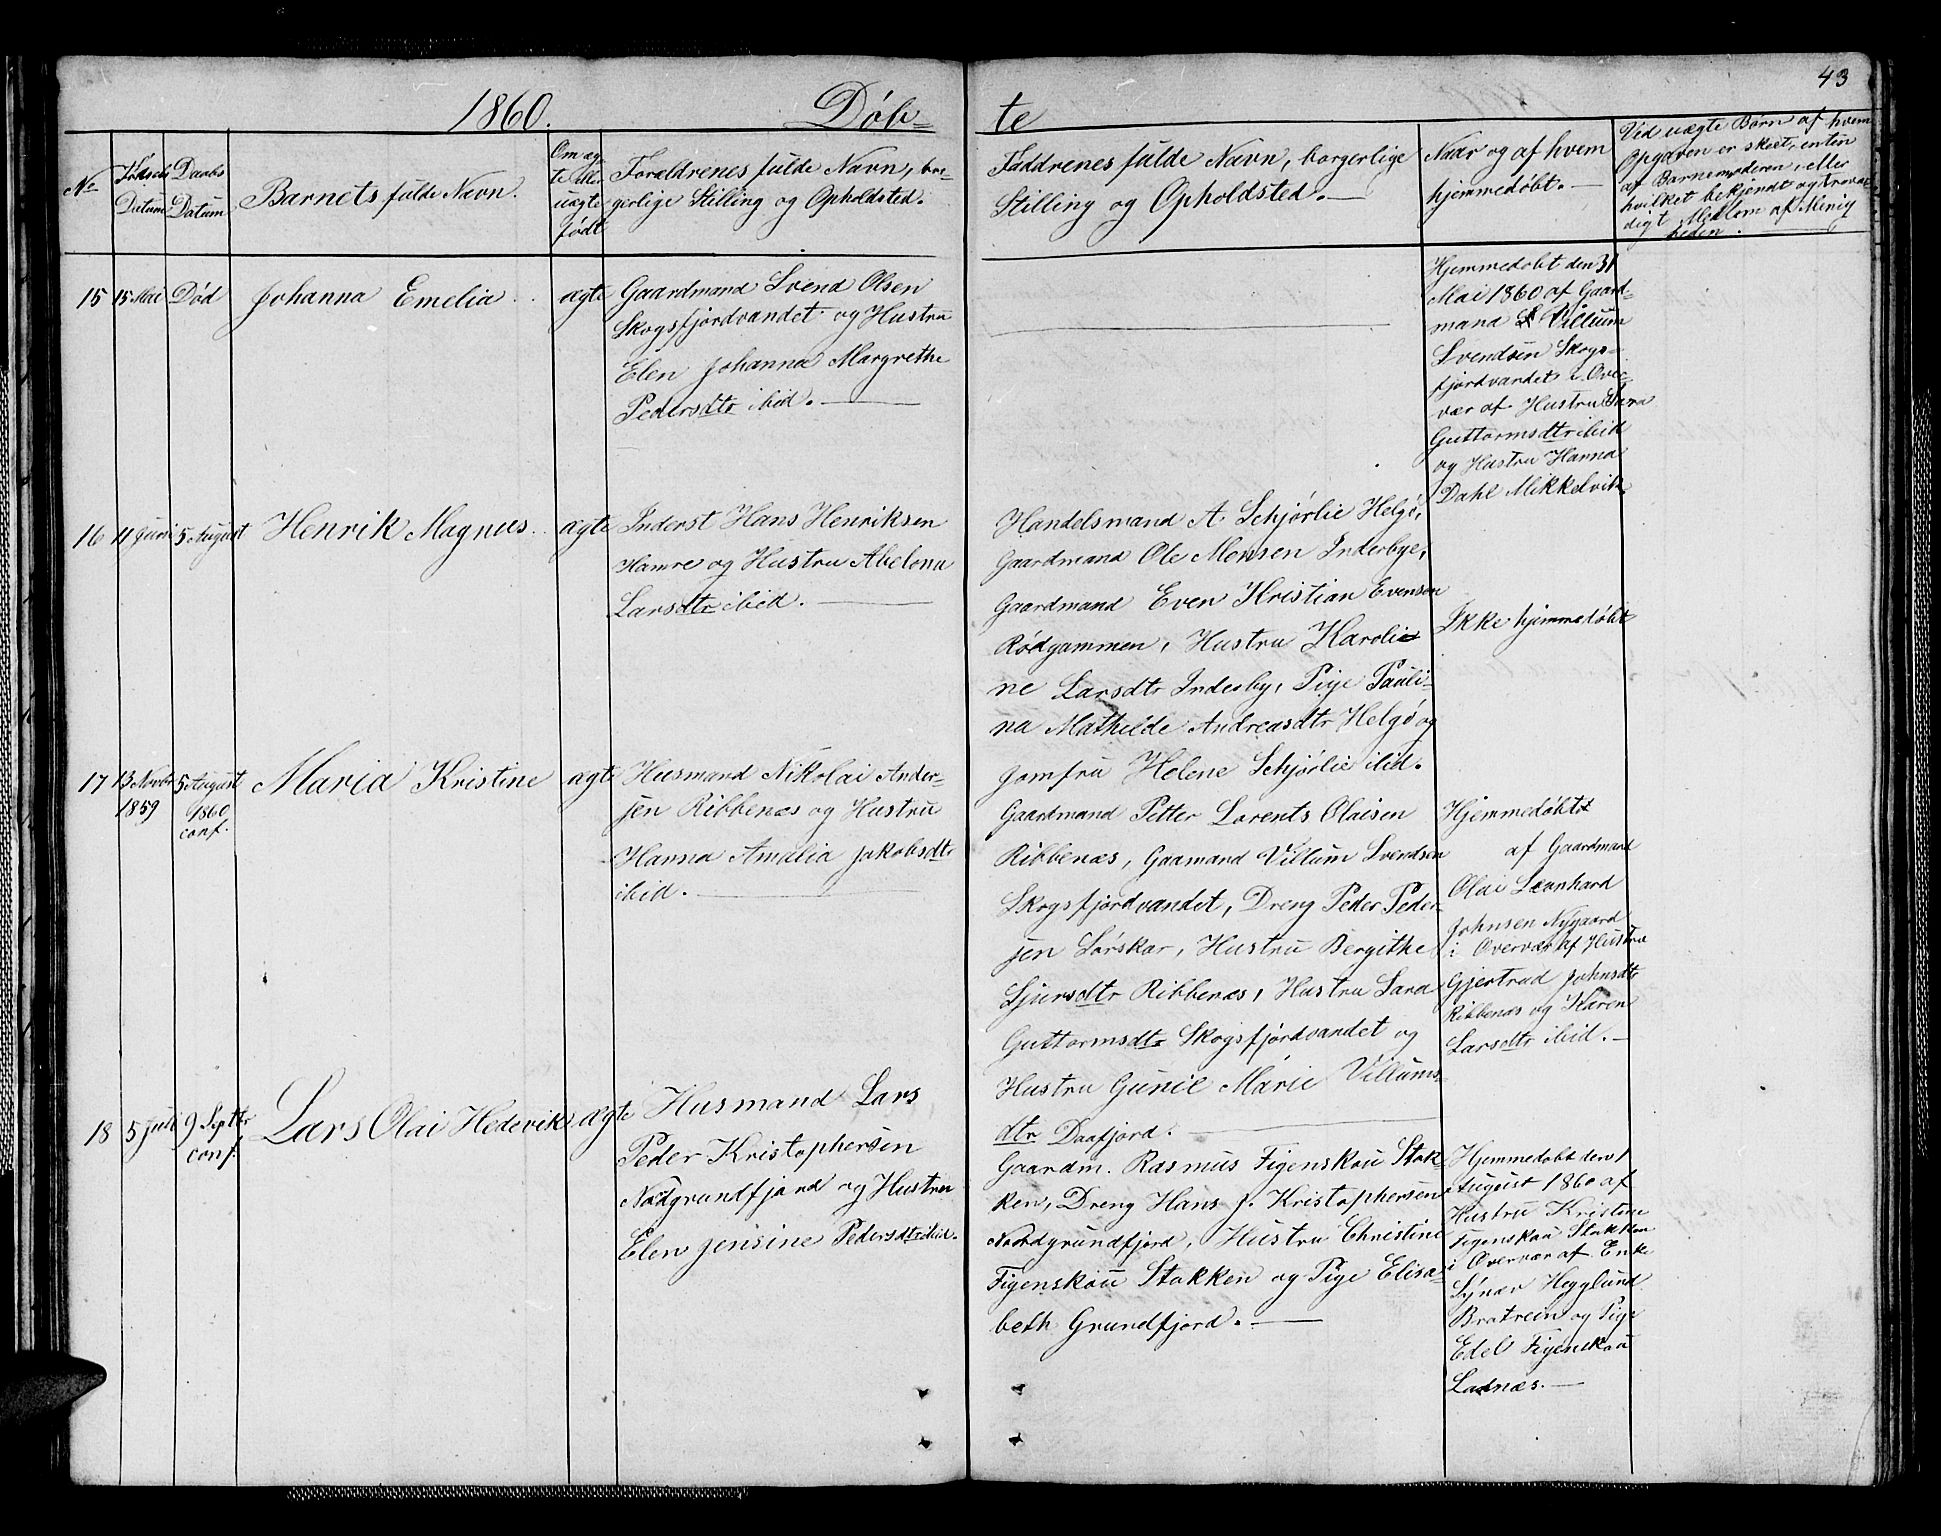 43
1860. Døb= te
No
Fødsels Datum
Daabs Datum
Barnets fulde Navn.
Om æg-
te eller
uægte
født
Forældrenes fulde Navn, bor-
gerlige Stilling og Opholdsted.
Faddrenes fulde Navn, borgerlige
Stilling og Opholdsted.
Naar og af hvem
hjemmedøbt.
Ved uægte Børn af hvem
Opgaven er skeet, enten
af Barnemoderen, eller
hvilket bekjendt og trovær-
digt Mellem af Menig
heden.
15 15 Mai Død Johanna Emelia. ægte
Gaardmand Svend Olsen
Skogsfjordvandet og Hustru
Elen Johanna Margrethe
Pedersdtr ibid.
Hjemmedøbt den 31
Mai 1860 af Gaard-
mand Villum
Svendsen Skogs-
fjordvandet i Over-
vær af Hustru Sara
Guttormsdtr ibid
og Hustru Hanna
Dahl Mikkelvik
16 11 Juni 5 August Henrik Magnus. ægte
Inderst Hans Henriksen
Hamre og Hustru Abelona
Larsdtr ibid.
Handelsmand A Schjørlie Helgø,
Gaardmand Ole Monsen Inderbye,
Gaardmand Even Kristian Evensen
Rødgammen, Hustru Karoli
ne Larsdtr Inderby, Pige Pauli-
na Mathilde Andreasdtr Helgø og
Jomfru Helene Schjørlie ibid.
Ikke hjemmedøbt
17 13 Novbr 1859 5 August 1860 conf. Maria Kristine ægte
Husmand Nikolai Ander-
sen Ribbenæs og Hustru
Hanna Amalia Jakobsdtr
ibid.
Gaardmand Petter Lorents Olaisen
Ribbenæs, Gaamand Villum Svendsen
Skogsfjordvandet, Dreng Peder Peder-
sen Sørskar, Hustru Bergithe
Sjursdtr Ribbenæs, Hustru Sara
Guttormsdtr Skogsfjordvandet og
Hustru Gunil Marie Villums-
dtr Daafjord.
Hjemmedøbt
af Gaardmand
Olai Leonhard
Johnsen Nygaard
i Overvær af Hustru
Gjertrud Johnsdtr
Ribbenæs og Karen
Larsdtr ibid.
18 5 Juli 9 Septbr conf. Lars Olai Hedevik ægte
Husmand Lars
Peder Kristophersen
Nordgrundfjord og Hustru
Elen Jensine Pedersdtr ibid.
Gaardm. Rasmus Figenskou Stok-
ken, Dreng Hans J. Kristophersen
Nordgrundfjord, Hustru Christine
Figenskou Stokken og Pige Elisa-
beth Grundfjord.
Hjemmedøbt den 1
August 1860 af
Hustru Kristine
Figenskou Stokken
i Overvær af Enke
Synær Hegglund
Bratrein og Pige
Edel Figenskou
Ladnæs.